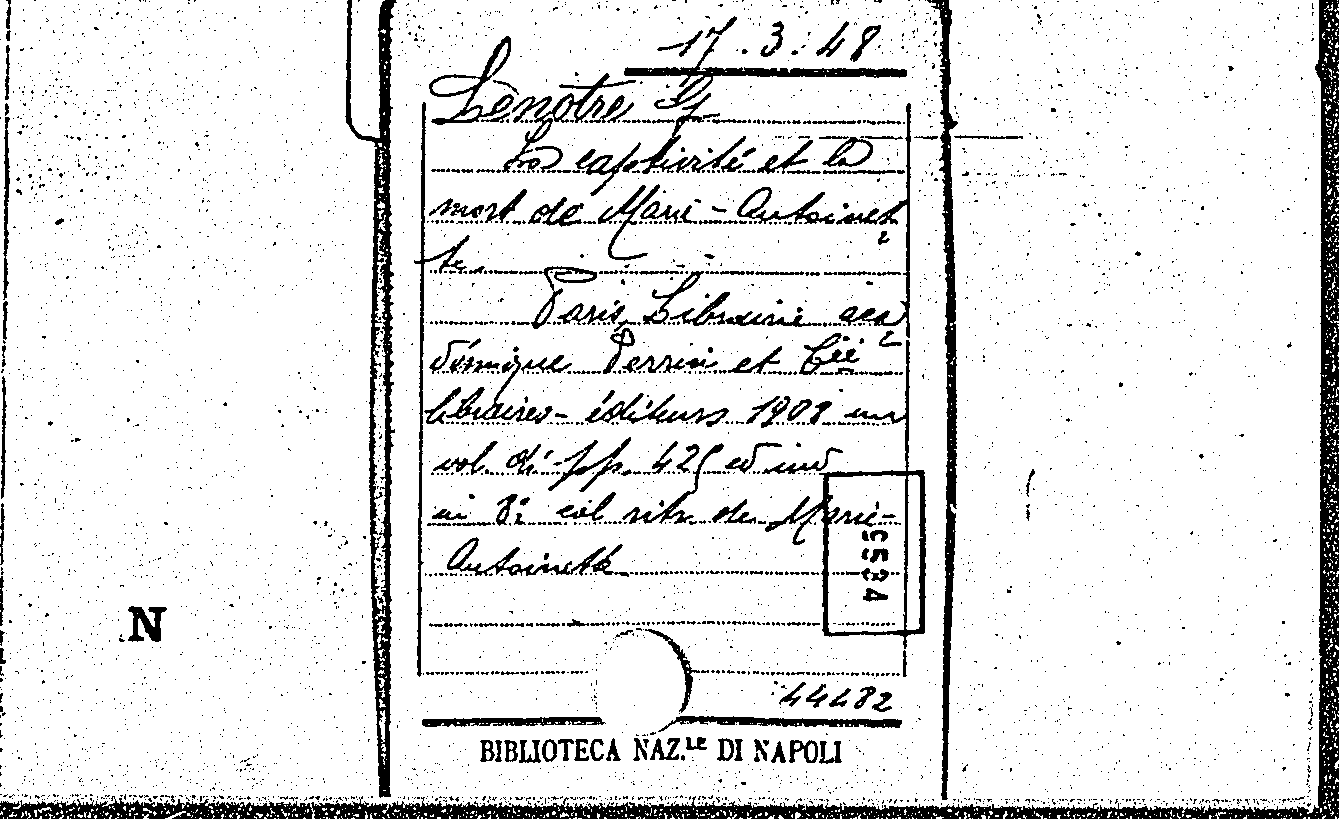 17.3.48
Lenotre G
La captivité et la
mort de Marie-Antoinet
te.
Paris, Librairie aca
démique Perrin et Cie
libraires-éditeurs 1908 un
vol. di pp. 425 ed ind
in 8° col ritr. de Marie-
Antoinette
9534
44482
BIBLIOTECA NAZ.LE DI NAPOLI
N